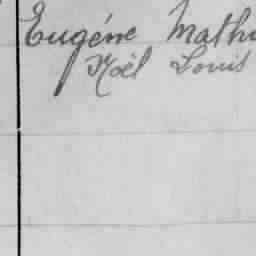 Eugéne Mathu
Noël Louis